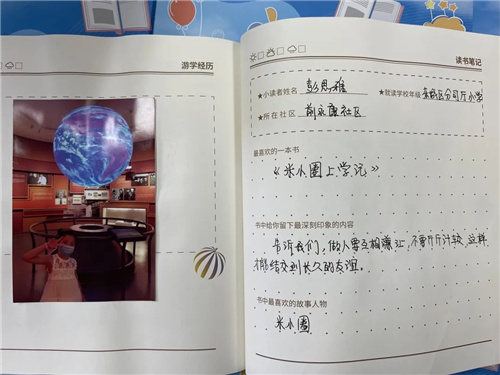 游学经历
读书笔记
★小读者姓名 彭思雅 ★就读学校年级 东城区分司厅小学
★所在社区 前永康社区
最喜欢的一本书
《米小圈上学记》
书中给你留下最深刻印象的内容
告诉我们,做人要互相谦让,不要斤斤计较,这样
才能结交到长久的友谊。
书中最喜欢的故事人物
米小圈